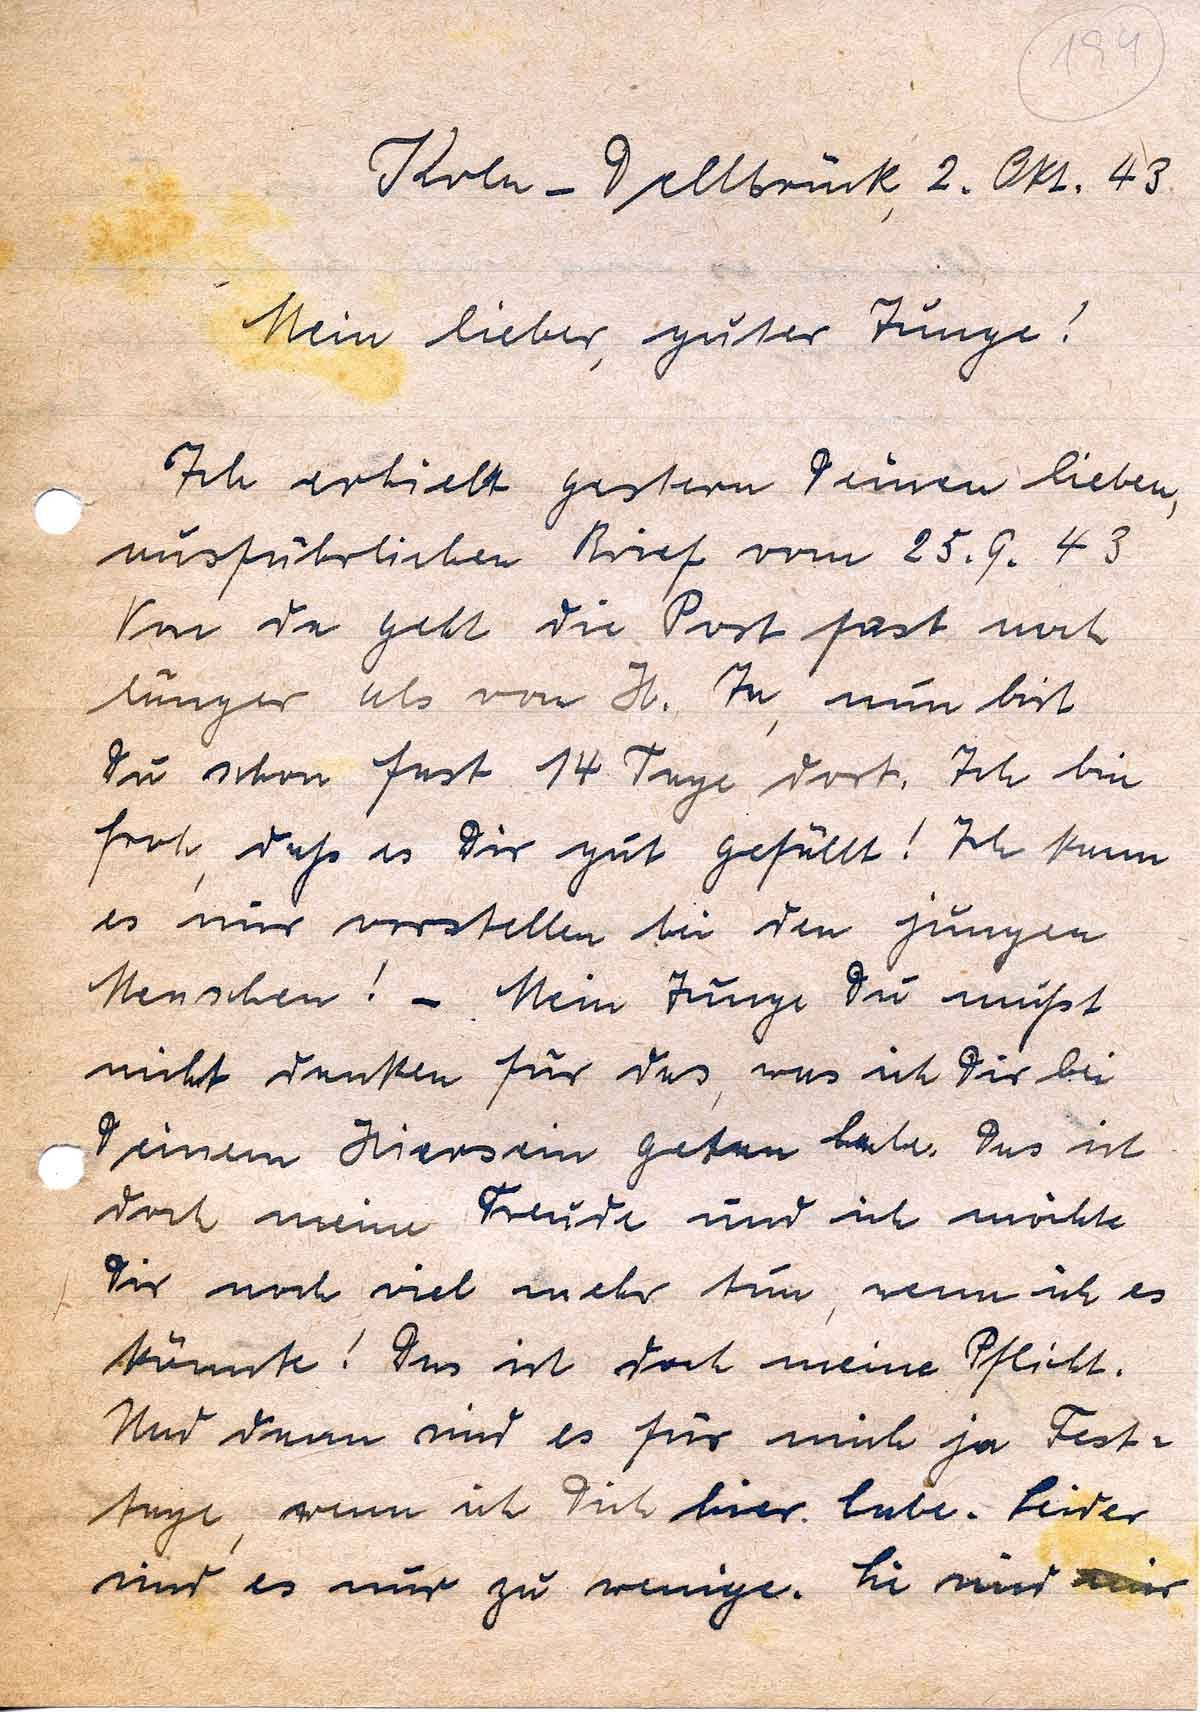 194
Köln - Dellbrück, 2. Okt. 43
Mein lieber, guter Junge!
Ich erhielt gestern Deinen lieben,
ausführlichen Brief vom 25.9.43
Von da geht die Post fast noch
länger als von H. Ja, nun bist
Du schon fast 14 Tage dort. Ich bin
froh, daß es Dir gut gefällt! Ich kann
es mir vorstellen bei den jungen
Menschen! - Mein Junge Du mußt
nicht danken für das, was ich Dir bei
Deinem Hiersein getan habe. Das ist
doch meine Freude und ich möchte
Dir noch viel mehr tun, wenn ich es
könnte! Das ist doch meine Pflicht.
Und dann sind es für mich ja Fest-
tage, wenn ich Dich hier habe. Leider
sind es nur zu wenige. Sie sind mir